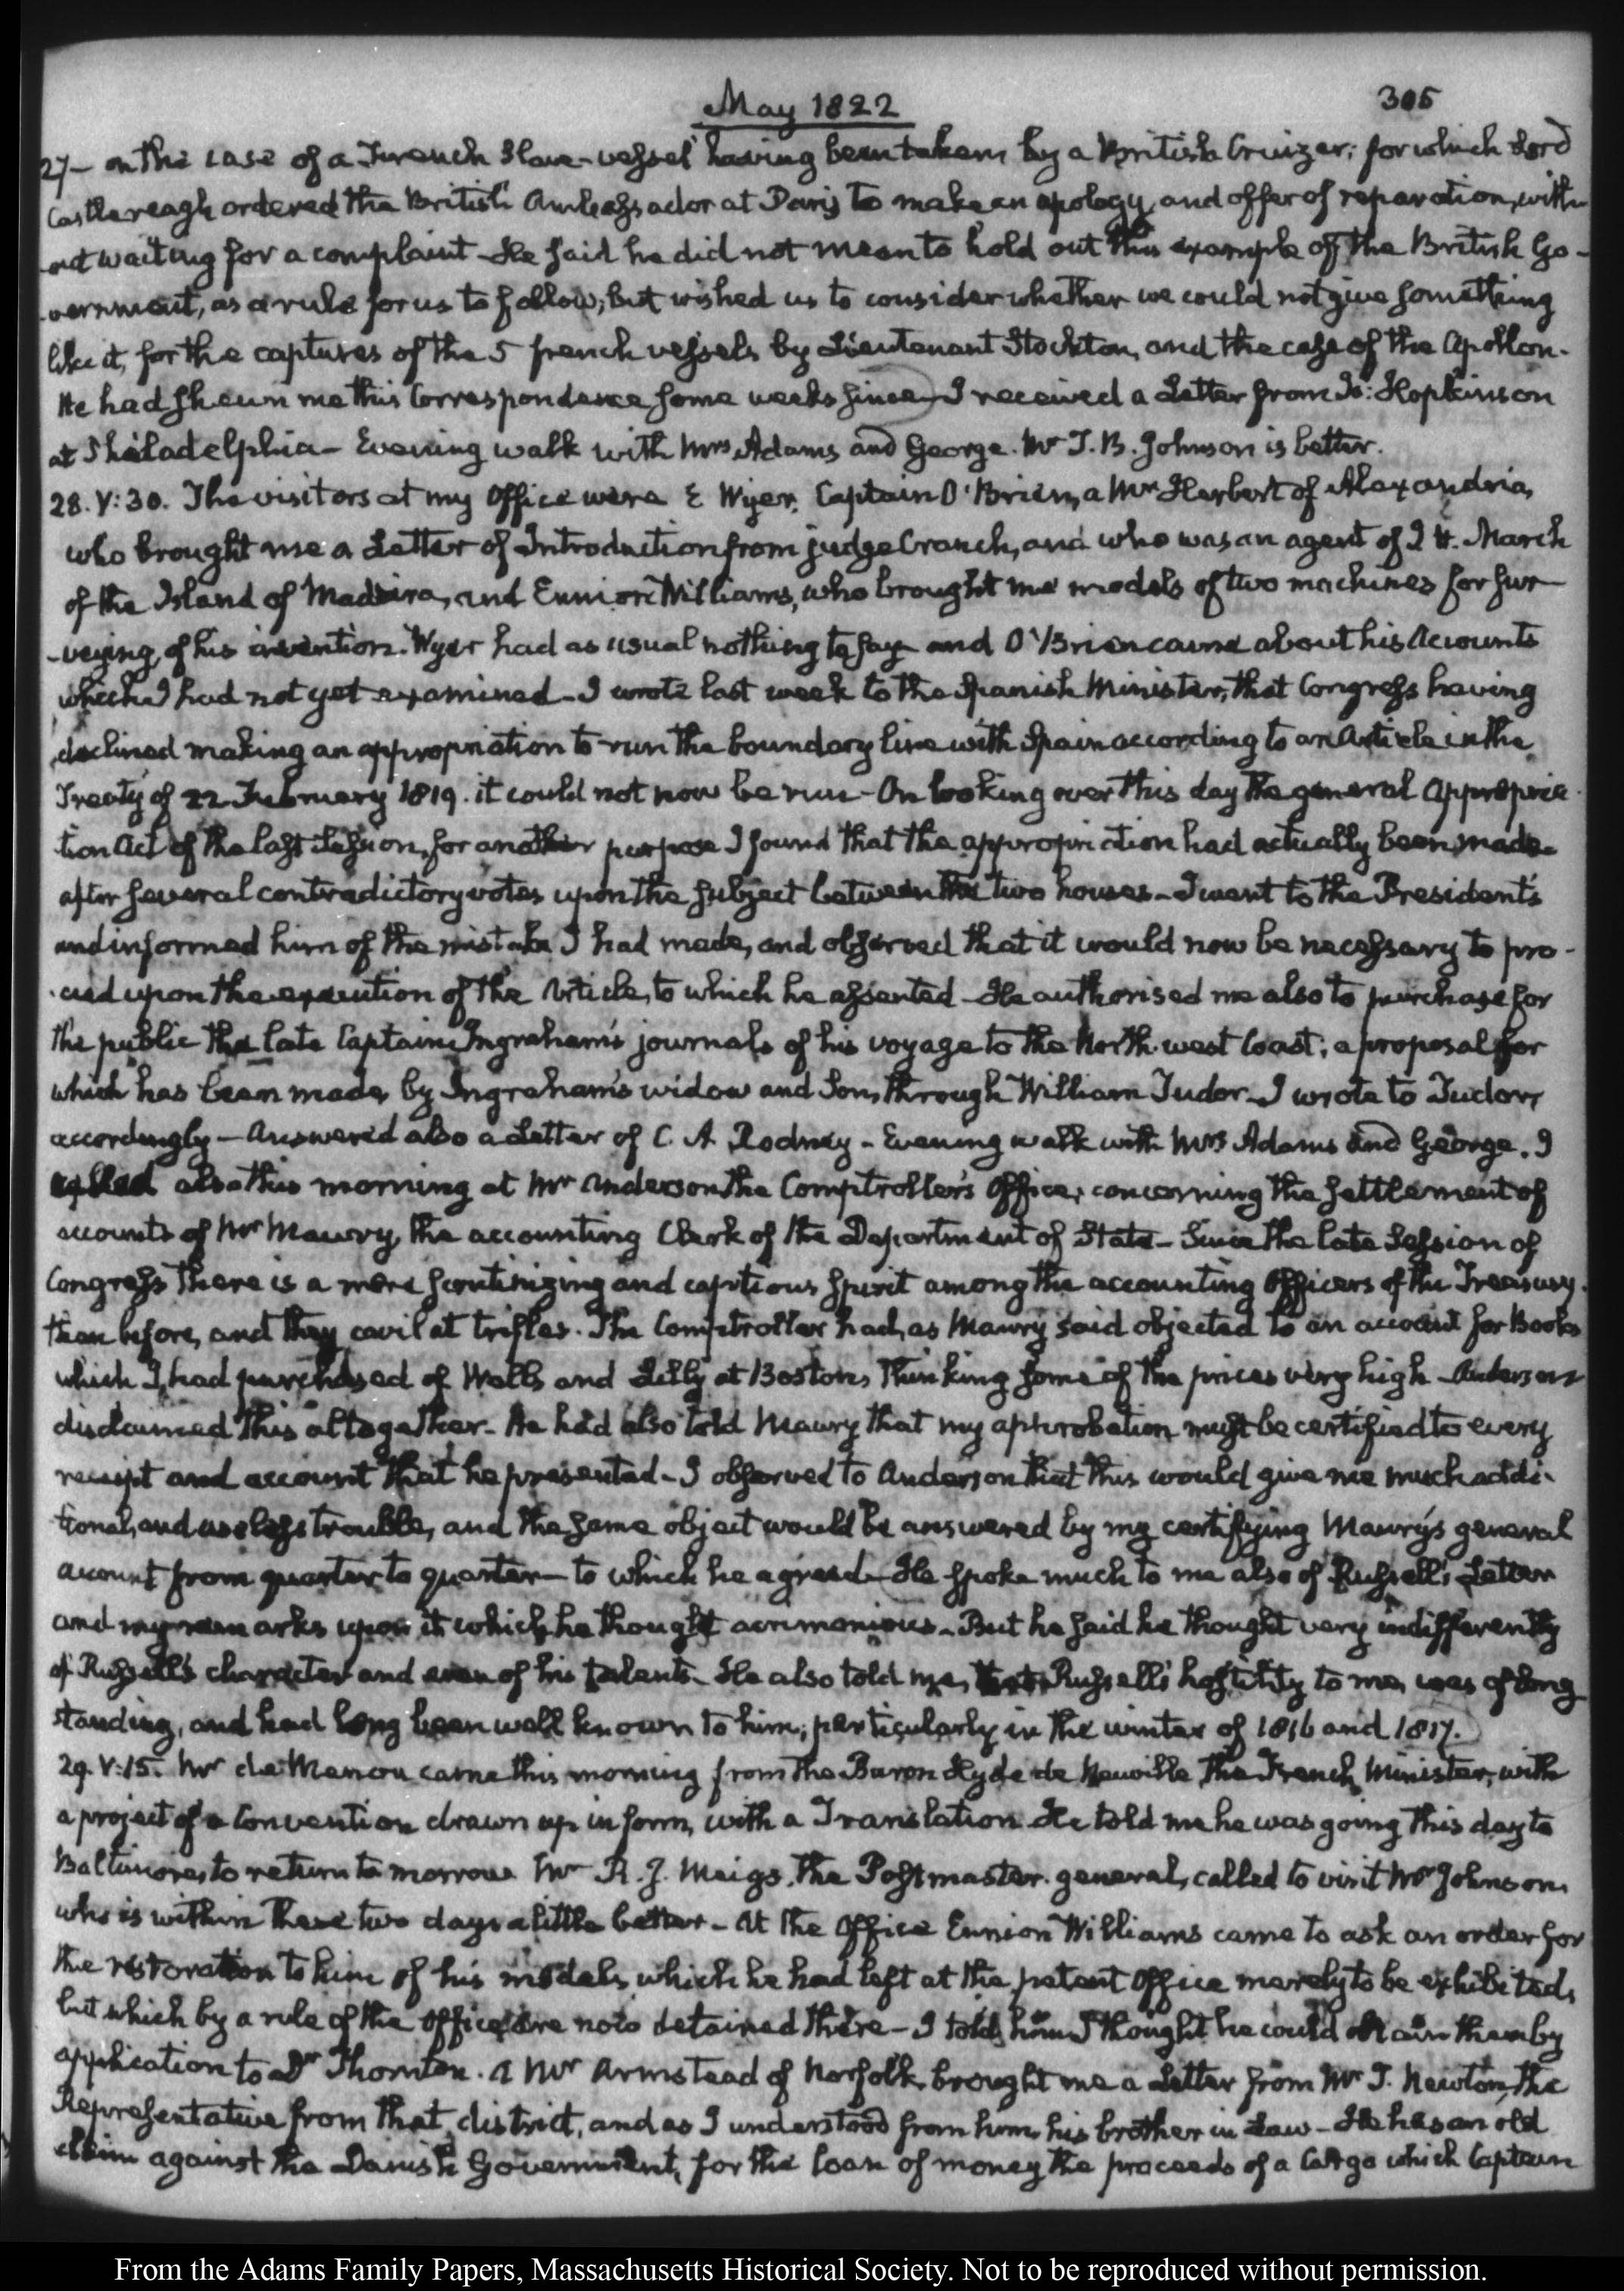 May 1822
305
27— on the case of a French Slave-vessel having been taken by a British Cruizer; for which Lord
Castlereagh ordered the British Ambassador at Paris to make an apology, and offer of reparation, with-
-out waiting for a complaint— He said he did not mean to hold out this example of the British Go-
-vernment, as a rule for us to follow; but wished us to consider whether we could not give something
like it, for the captures of the 5 french vessels by Lieutenant Stockton, and the case of the Apollon.
He had shewn me this Correspondence some weeks since— I received a Letter from Jos: Hopkinson
at Philadelphia— Evening walk with Mrs Adams and George. Mr T. B. Johnson is better.
28. V:30. The visitors at my Office were E Wyer, Captain O'Brien, a Mr Herbert of Alexandria,
who brought me a Letter of Introduction from judge Cranch, and who was an agent of J H. March
of the Island of Madeira, and Ennion Williams, who brought me models of two machines for sur-
-veying, of his invention. Wyer had as usual nothing to say— and O'Brien came about his Accounts
which I had not yet examined— I wrote last week to the Spanish Minister, that Congress having
declined making an appropriation to run the boundary line with Spain according to an Article in the
Treaty of 22 February 1819. it could not now be run— On looking over this day the general Appropria-
tion Act of the last Session, for another purpose I found that the appropriation had actually been made
after several contradictory votes upon the subject between the two houses— I went to the President's
and informed him of the mistake I had made, and observed that it would now be necessary to pro-
-ceed upon the execution of the Article, to which he assented— He authorised me also to purchase for
the public the late Captain Ingraham's journals of his voyage to the North-west Coast; a proposal for
which has been made by Ingraham's widow and Son, through William Tudor— I wrote to Tudor,
accordingly— Answered also a Letter of C. A. Rodney— Evening walk with Mrs Adams and George. I
called also this morning at Mr Anderson the Comptroller's Office, concerning the settlement of
accounts of Mr Maury, the accounting Clerk of the Department of State— Since the late Session of
Congress there is a more scrutinizing and captious spirit among the accounting Officers of the Treasury
than before, and they cavil at trifles. The Comptroller had, as Maury said objected to an account for Books
which I had purchased of Wells and Lilly at Boston, thinking some of the prices very high— Anderson
disclaimed this altogether— He had also told Maury that my approbation must be certified to every
receipt and account that he presented— I observed to Anderson that this would give me much addi-
tional, and useless trouble, and the same object would be answered by my certifying Maury's general
account from quarter to quarter— to which he agreed— He spoke much to me also of Russell's Letter
and my remarks upon it which he thought acrimonious— But he said he thought very indifferently
of Russell's character and even of his talents— He also told me, that Russell's hostility to me, was of long
standing, and had long been well known to him; particularly in the winter of 1816 and 1817.
29. V:15. Mr de Menou came this morning from the Baron Hyde de Neuville the French Minister, with
a project of a Convention drawn up in form, with a Translation. He told me he was going this day to
Baltimore, to return to morrow. Mr R. J. Meigs, the Postmaster general, called to visit Mr Johnson,
who is within these two days a little better— At the Office Ennion Williams came to ask an order for
the restoration to him of his models, which he had left at the patent Office merely to be exhibited,
but which by a rule of the Office are now detained there— I told him I thought he could obtain them by
application to Dr Thornton. A Mr Armstead of Norfolk, brought me a Letter from Mr T. Newton, the
Representative from that district, and as I understood from him, his brother in Law— He has an old
claim against the Danish Government, for the loan of money the proceeds of a Cargo which Captain
From the Adams Family Papers, Massachusetts Historical Society. Not to be reproduced without permission.